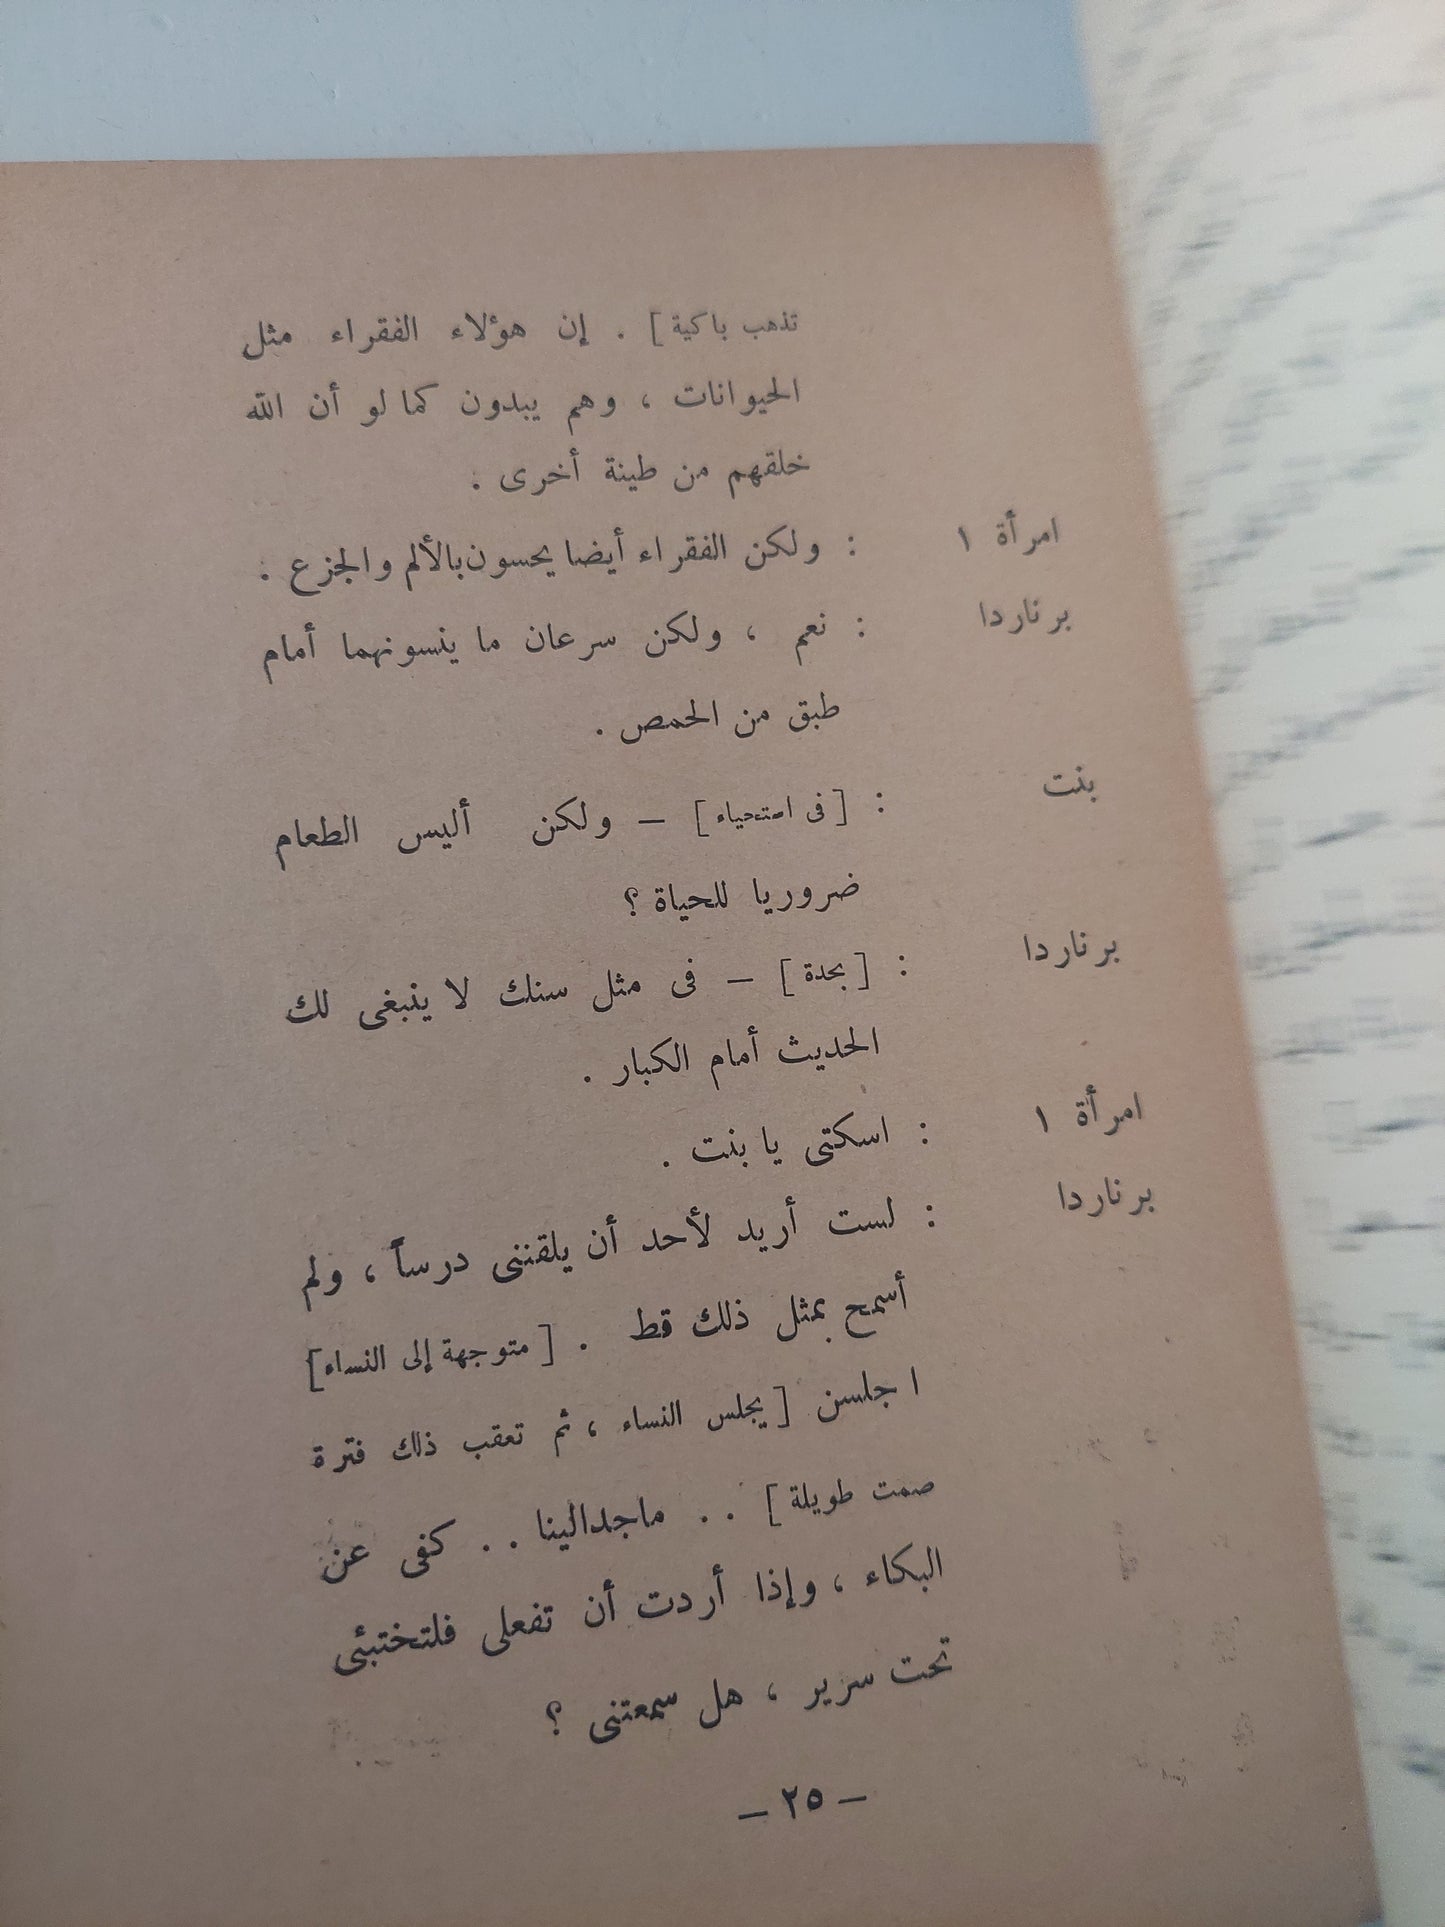 تذهب باكية ] . إن هؤلاء الفقراء مثل
الحيوانات ، وهم يبدون كما لو أن الله
خلقهم من طينة أخرى .
امرأة ١ : ولكن الفقراء أيضا يحسون بالألم والجزع .
برناردا : نعم ، ولكن سرعان ما ينسونهما أمام
طبق من الحمص .
بنت : [ فى استحياء ] – ولكن أليس الطعام
ضروريا للحياة ؟
برناردا : [ بحدة ] – فى مثل سنك لا ينبغى لك
الحديث أمام الكبار .
امرأة ١ : اسكتى يا بنت .
برناردا : لست أريد لأحد أن يلقننى درساً ، ولم
أسمح بمثل ذلك قط . [ متوجهة إلى النساء ]
اجلسن [ يجلس النساء ، ثم تعقب ذلك فترة
صمت طويلة ] . . ماجدالينا . . كفى عن
البكاء ، وإذا أردت أن تفعلى فلتختبئى
تحت سرير ، هل سمعتنى ؟
– ٢٥ –